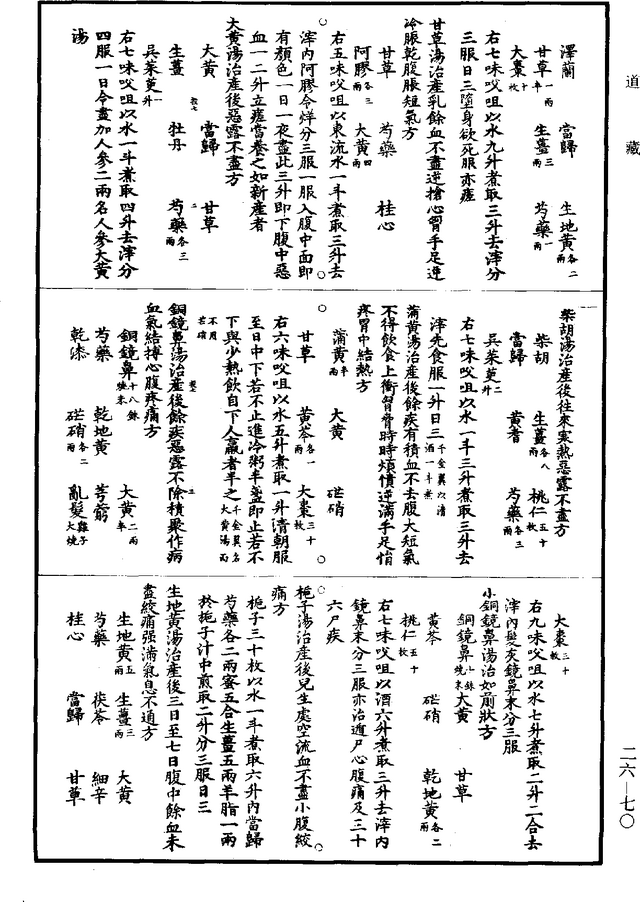 道藏
澤蘭　當歸　生地黃各二兩
甘草一兩半　生薑三兩　芍藥一兩
大棗十枚
右七味㕮咀以水九升煮取三升去滓分
三服日三墮身欲死服亦瘥
甘草湯治產乳餘血不盡逆搶心胸手足逆
冷脹乾腹脹短氣方
甘草　芍藥　桂心
阿膠各三兩　大黃四兩
右五味㕮咀以東流水一斗煮取三升去
滓內阿膠令烊分三服一服入腹中面即
有顏色一日一夜盡此三升即下腹中惡
血一二升立瘥當養之如新產者
大黃湯治產後惡露不盡方
大黃　當歸　甘草
生薑　牡丹　芍藥各三兩
吳茱萸一升
右七味㕮咀以水一斗煮取四升去滓分
四服一日令盡加人參二兩名人參大黃
湯
柴胡湯治產後往來寒熱惡露不盡方
柴胡　生薑各八兩　桃仁五十枚
當歸　黃耆　芍藥各三兩
吳茱萸二升
右七味㕮咀以水一斗三升煮取三升去
滓先食服一升日三千金翼以清酒一斗煮
蒲黃湯治產後餘疾有積血不去腹大短氣
不得飲食上衝胸脅時時煩憒逆滿手足悁
疼胃中結熱方
蒲黃半兩　大黃　芒硝
甘草　黃芩各一兩　大棗三十枚
右六味㕮咀以水五升煮取一升清朝服
至日中下若不止進冷粥半盞即止若不
下與少熱飲自下人羸者半之千金翼名大黃湯而不用芒硝
銅鏡鼻湯治產後餘疾惡露不除積聚作病
血氣結搏心腹疼痛方
銅鏡鼻十八銖燒末　大黃二兩半
芍藥　乾地黃　芎藭
乾漆　芒硝各二兩　亂髮雞子大燒
大棗三十枚
右九味㕮咀以水七升煮取二升二合去
滓內髮灰鏡鼻末分三服
小銅鏡鼻湯治如前狀方
銅鏡鼻十銖燒末　大黃　甘草
黃芩　芒硝　乾地黃各二兩
桃仁五十枚
右七味㕮咀以酒六升煮取三升去滓內
鏡鼻末分三服亦治遁尸心腹痛及三十
六尸疾
梔子湯治產後兒生處空流血不盡小腹絞
痛方
梔子三十枚以水一斗煮取六升內當歸
芍藥各二兩蜜五合生薑五兩羊脂一兩
於梔子汁中煎取二升分三服日三
生地黃湯治產後三日至七日腹中餘血未
盡絞痛强滿氣息不通方
生地黃五兩　生薑三兩　大黃
芍藥　茯苓　細辛
桂心　當歸　甘草
二六—七〇